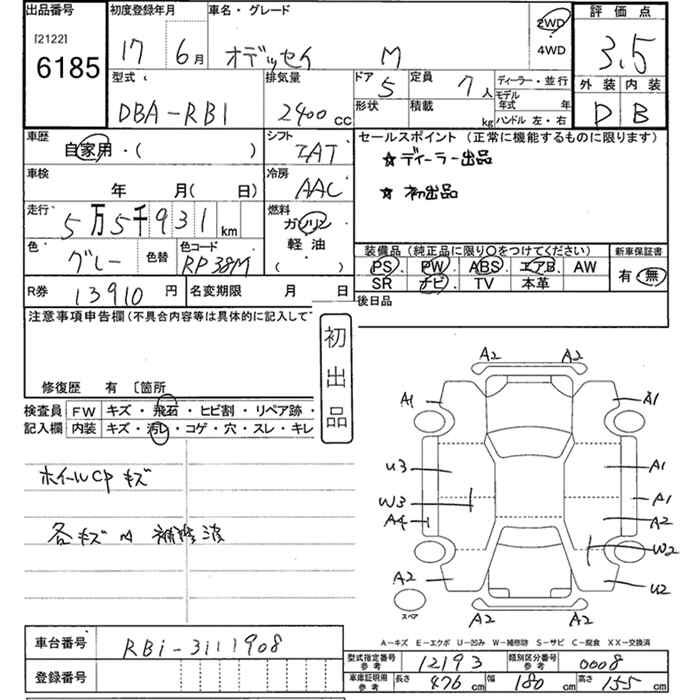 出品番号 初度登録年月 車名・グレード 評価点
[2122] 6185 17 6月 オデッセイ M 2WD 4WD 3.5
型式 排気量 ドア 定員 ディーラー・並行 外装 内装
DBA-RB1 2400cc 5 7人 モデル年式 年 D B
形状 積載 kg ハンドル 左・右
車歴 シフト セールスポイント(正常に機能するものに限ります)
自家用・( ) IAT ☆ディーラー出品
車検 冷房 ☆初出品
年 月( 日) AAC
走行 燃料
5万5千931km ガソリン
軽油
( )
色 色替 色コード 装備品(純正品に限り○をつけてください) 新車保証書
グレー RP38M PS. PW. ABS. エアB. AW 有・無
SR ナビ TV 本革
R券 13910円 名変期限 月 日 後日品
注意事項申告欄(不具合内容等は具体的に記入して
初出品
修復歴 有 〔箇所
検査員 FW キズ・飛石・ヒビ割・リペア跡・
記入欄 内装 キズ・汚レ・コゲ・穴・スレ・キレ
ホイールCPキズ
各キズ 補修波
A2 A2
A1 A1
U3 A1
W3 A1
A4 A2
W2
A2 U2
スペア
A2 A2
A-キズ E-エクボ U-凹み W-補修跡 S-サビ C-腐食 XX-交換済
車台番号 RB1-3111908
型式指定番号 参考 12193 類別区分番号 参考 0008
登録番号
車庫証明用 参考 長さ 476cm 幅 180cm 高さ 155cm